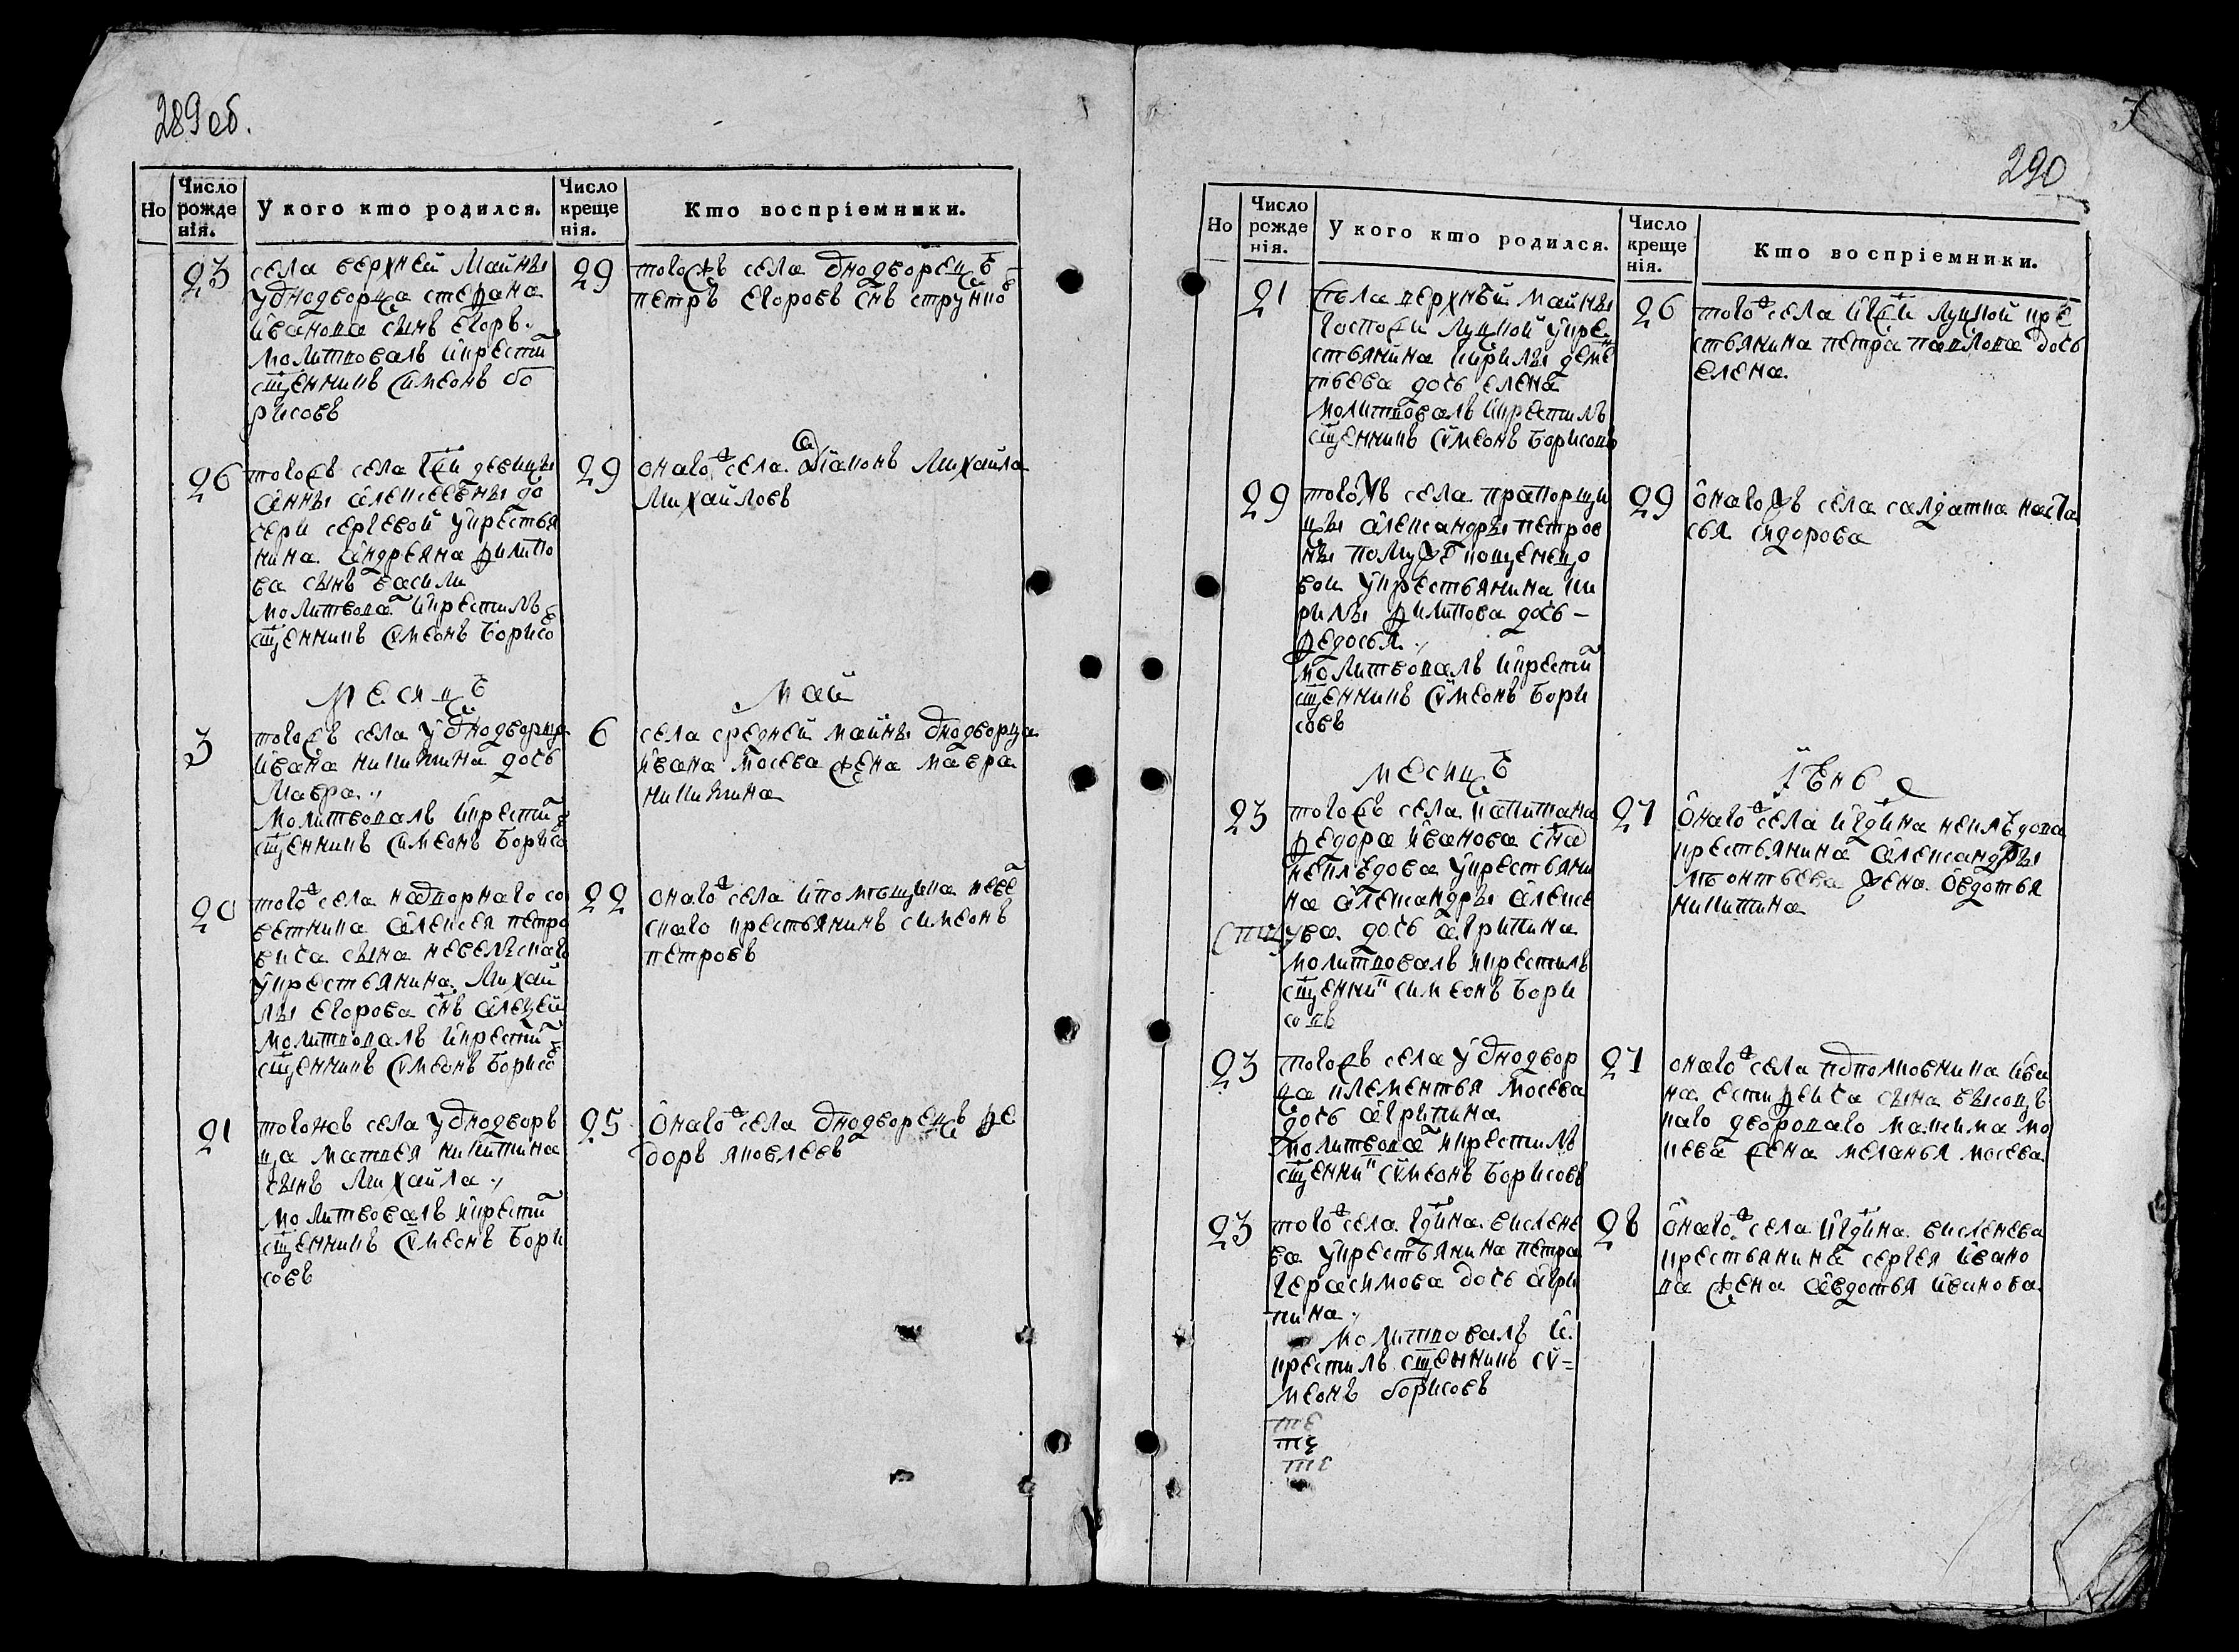 289 об.
Но
Число рожде нія.
У кого кто родился.
Число креще нія.
Кто воспріемники.
23
села верхней Майны
у однодворца стефана
иванова сынъ егоръ.
молитвовалъ и крести
сщенникъ симеонъ бо
рисовъ
29
тогожъ села однодворецъ
петръ егоровъ снъ струнко
26
тогожъ села гжи девицы
анны алексеевны до
чери сергевой у крестья
нина андреяна филипо
ва сынъ васили
молитвова и крестилъ
сщенникъ симеонъ борисо
29
онаго ж села диаконъ михаила
михайловъ
месицъ
май
3
тогожъ села у однодворца
ивана никитина дочь
мавра.
молитвовалъ и крести
сщенникъ симеонъ борисо
6
села средней майны однодворца
ивана мосева жена мавра
никитина
20
того ж села надворнаго со
ветника алексея петро
вича сына невельскаго
у крестьянина михай
лы егорова снъ алецей
молитвовалъ и крести
сщенникъ симеонъ борисо
22
онаго ж села и помещика неве
скаго крестьянинъ симеонъ
петровъ
21
тогожъ села у однодворъ
ца матвея никитина
сынъ михайла.
молитвовалъ и крести
сщенникъ симеонъ бори
совъ
25
онаго ж села однодворецъ фе
доръ яковлевъ
290
Но
Число рожде нія.
У кого кто родился.
Число креще нія.
Кто воспріемники.
21
села верхнъй майны
госпожи луцкой у кре
стьянина кирилы деме
тьева дочь елена
молитвовалъ и крестилъ
сщенникъ симеонъ борисовъ
26
того ж села и гжи луцкой кре
стьянина петра павлова дочь
елена.
29
тогожъ села прапорщи
цы александры петров
ны
у крестьянина ки
рилы филипова дочь
федосья.
молитвовалъ и крести
сщенникъ симеонъ бори
совъ
29
онагожъ села салдатка наста
сья сидорова
месицъ
іюнь
23
тогожъ села капитана
федора иванова сна
неклъдова у крестьяни
на александры алексе
ва дочь агрипина
молитвовалъ и крестилъ
сщенник симеонъ бори
совъ
27
онаго ж села и гдина неклъдова
крестьянина александры
леонтьева жена овдотья
никитина
23
тогожъ села у однодвор
ца клементья мосева
дочь агрипина
молитвова и крестилъ
сщенник симеонъ борисовъ
27
онаго ж села полковника ива
на
сына высоцъ
каго двороваго максима мо
жена меланья мосева
23
того ж села гдина висленe
ва у крестьянина петра
герасимова дочь агри
пина.
молитвовалъ и
крестилъ сщенникъ си=
меонъ борисовъ
28
онаго ж села и гдина висленева
крестьянина сергея ивано
ва жена авдотья иванова